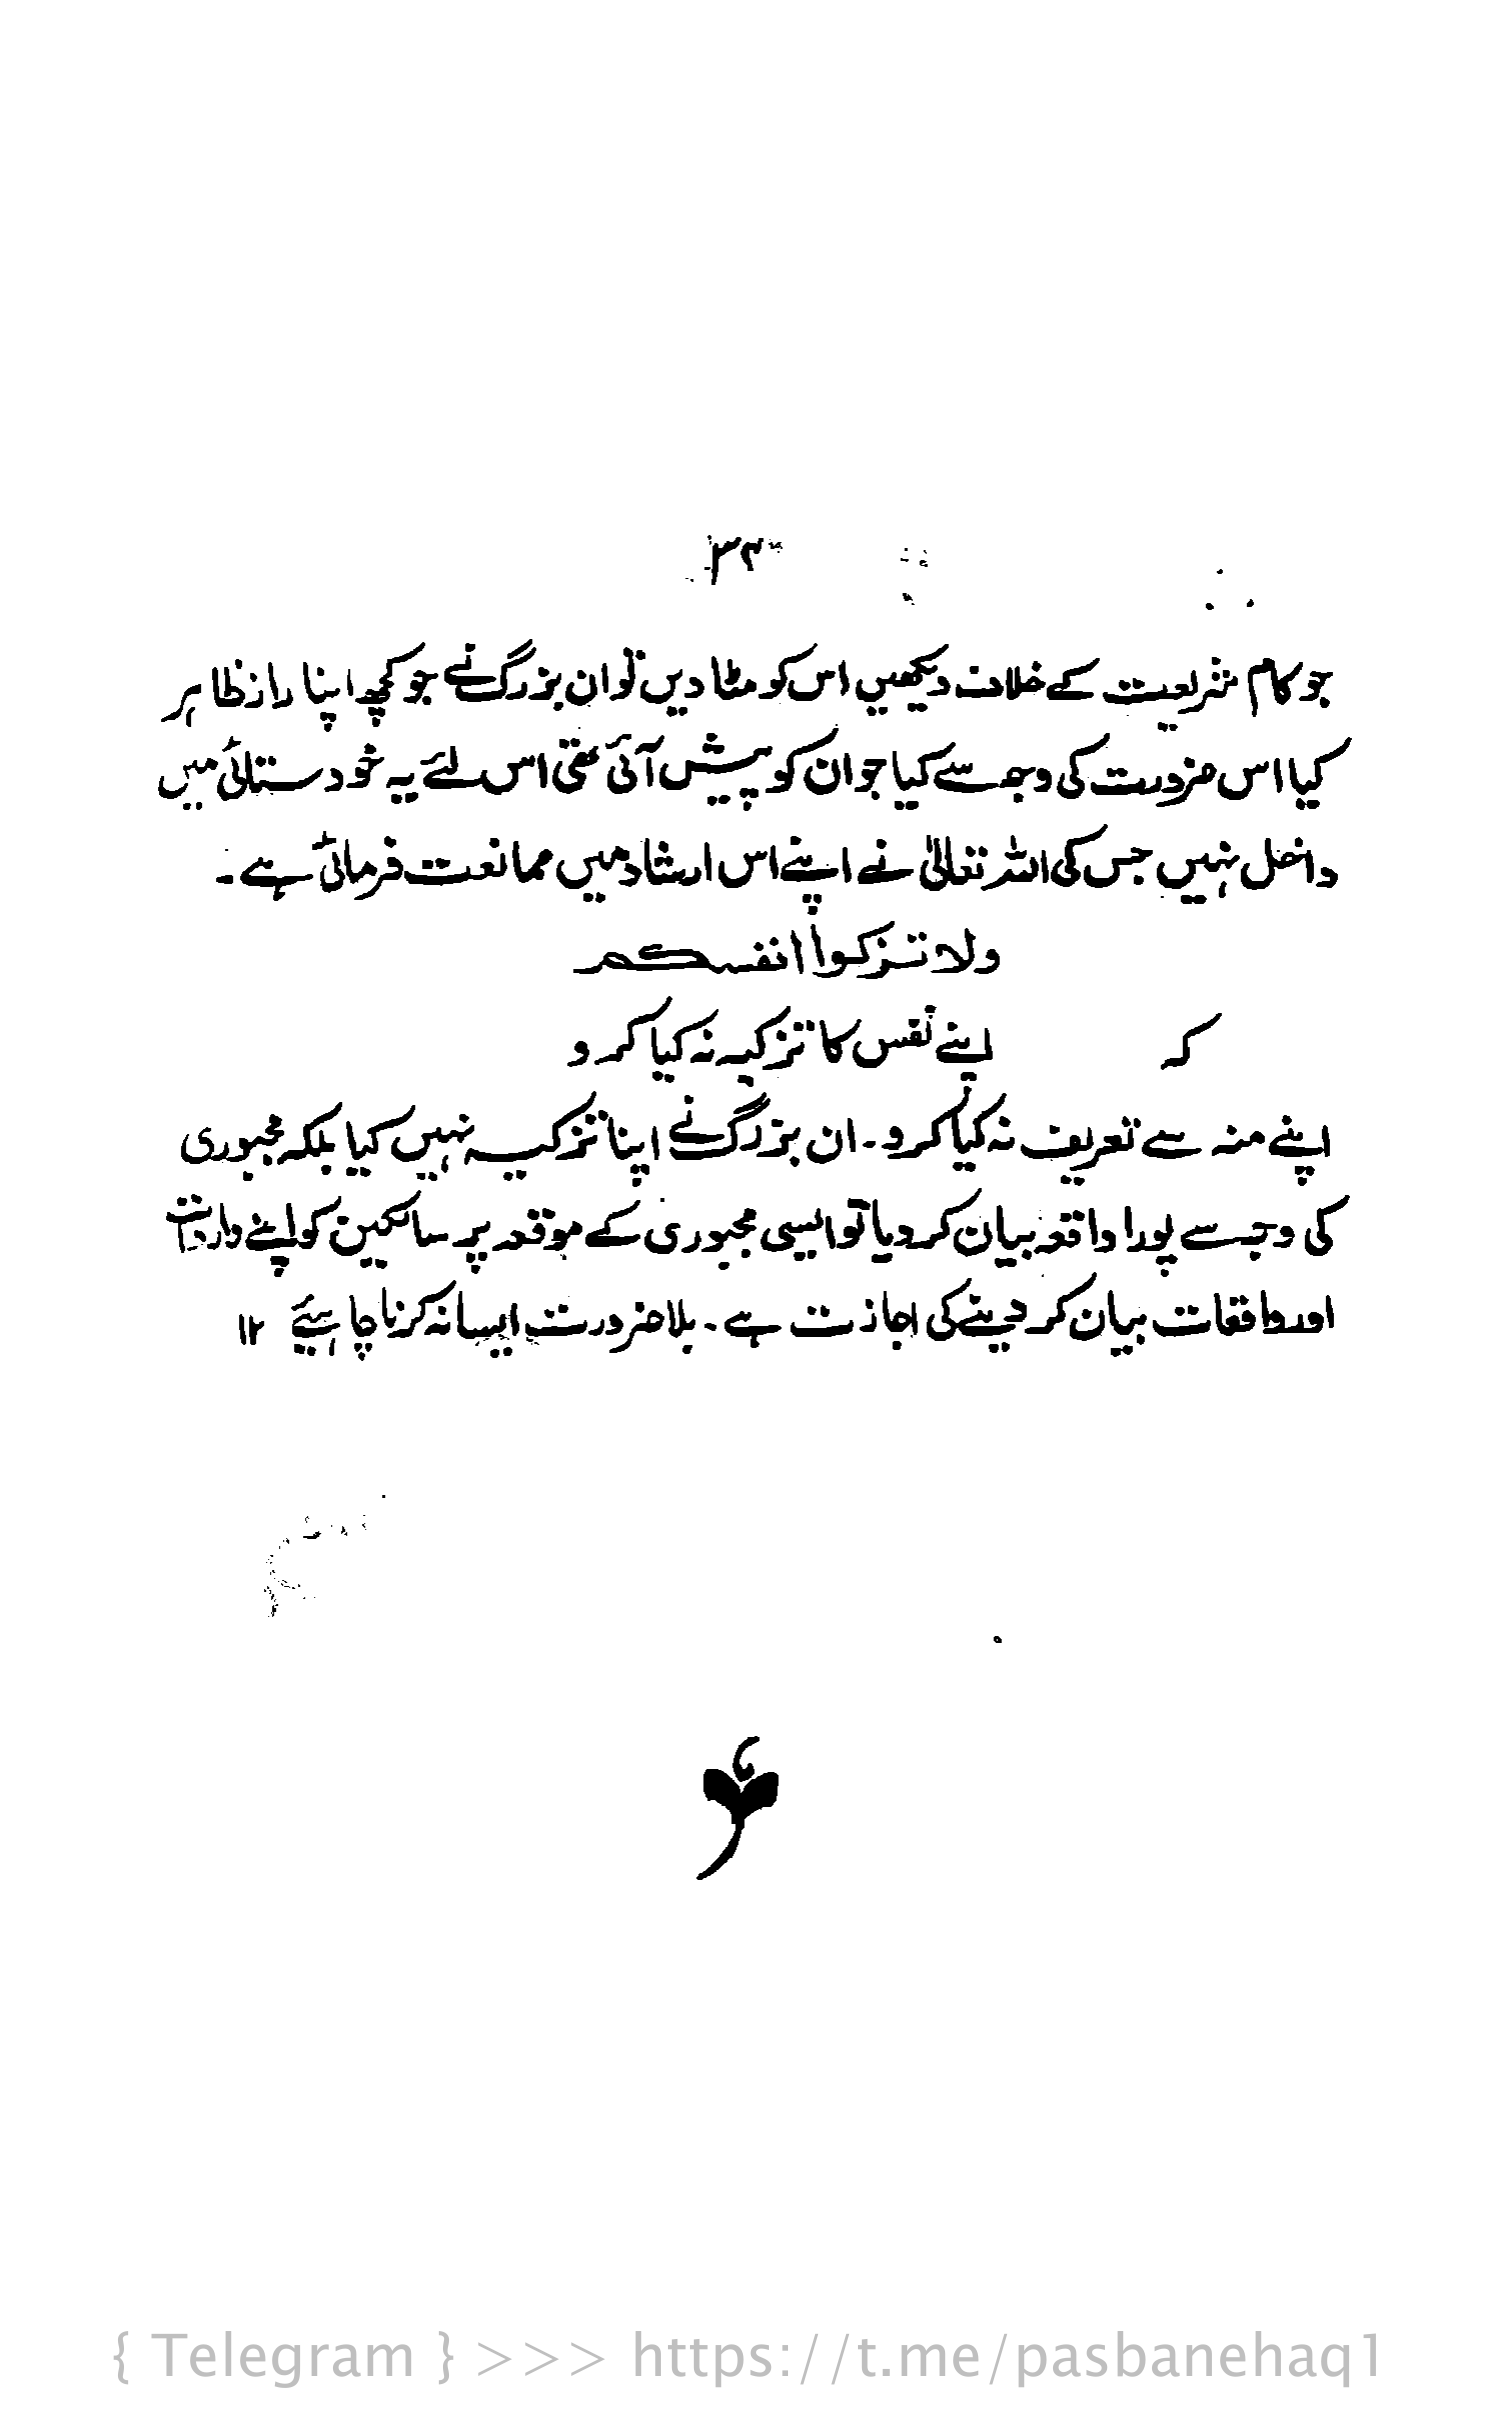 ۳۴
جو کام شریعت کے خلاف دیکھیں اس کو مٹا دیں تو ان بزرگ نے جو کچھ اپنا راز ظاہر
کیا اس ضرورت کی وجہ سے کیا جو ان کو پیش آئی تھی اس لئے یہ خودستائی میں
داخل نہیں جس کی اللہ تعالیٰ نے اپنے اس ارشاد میں ممانعت فرمائی ہے۔
ولا تزکوا انفسکم
کہ اپنے نفس کا تزکیہ نہ کیا کرو
اپنے منہ سے تعریف نہ کیا کرو۔ ان بزرگ نے اپنا تزکیہ نہیں کیا بلکہ مجبوری
کی وجہ سے پورا واقعہ بیان کر دیا تو ایسی مجبوری کے موقعہ پر سالکین کو اپنے واردات
اور واقعات بیان کر دینے کی اجازت ہے۔ بلا ضرورت ایسا نہ کرنا چاہیئے ۱۲
{ Telegram } >>> https://t.me/pasbanehaq1